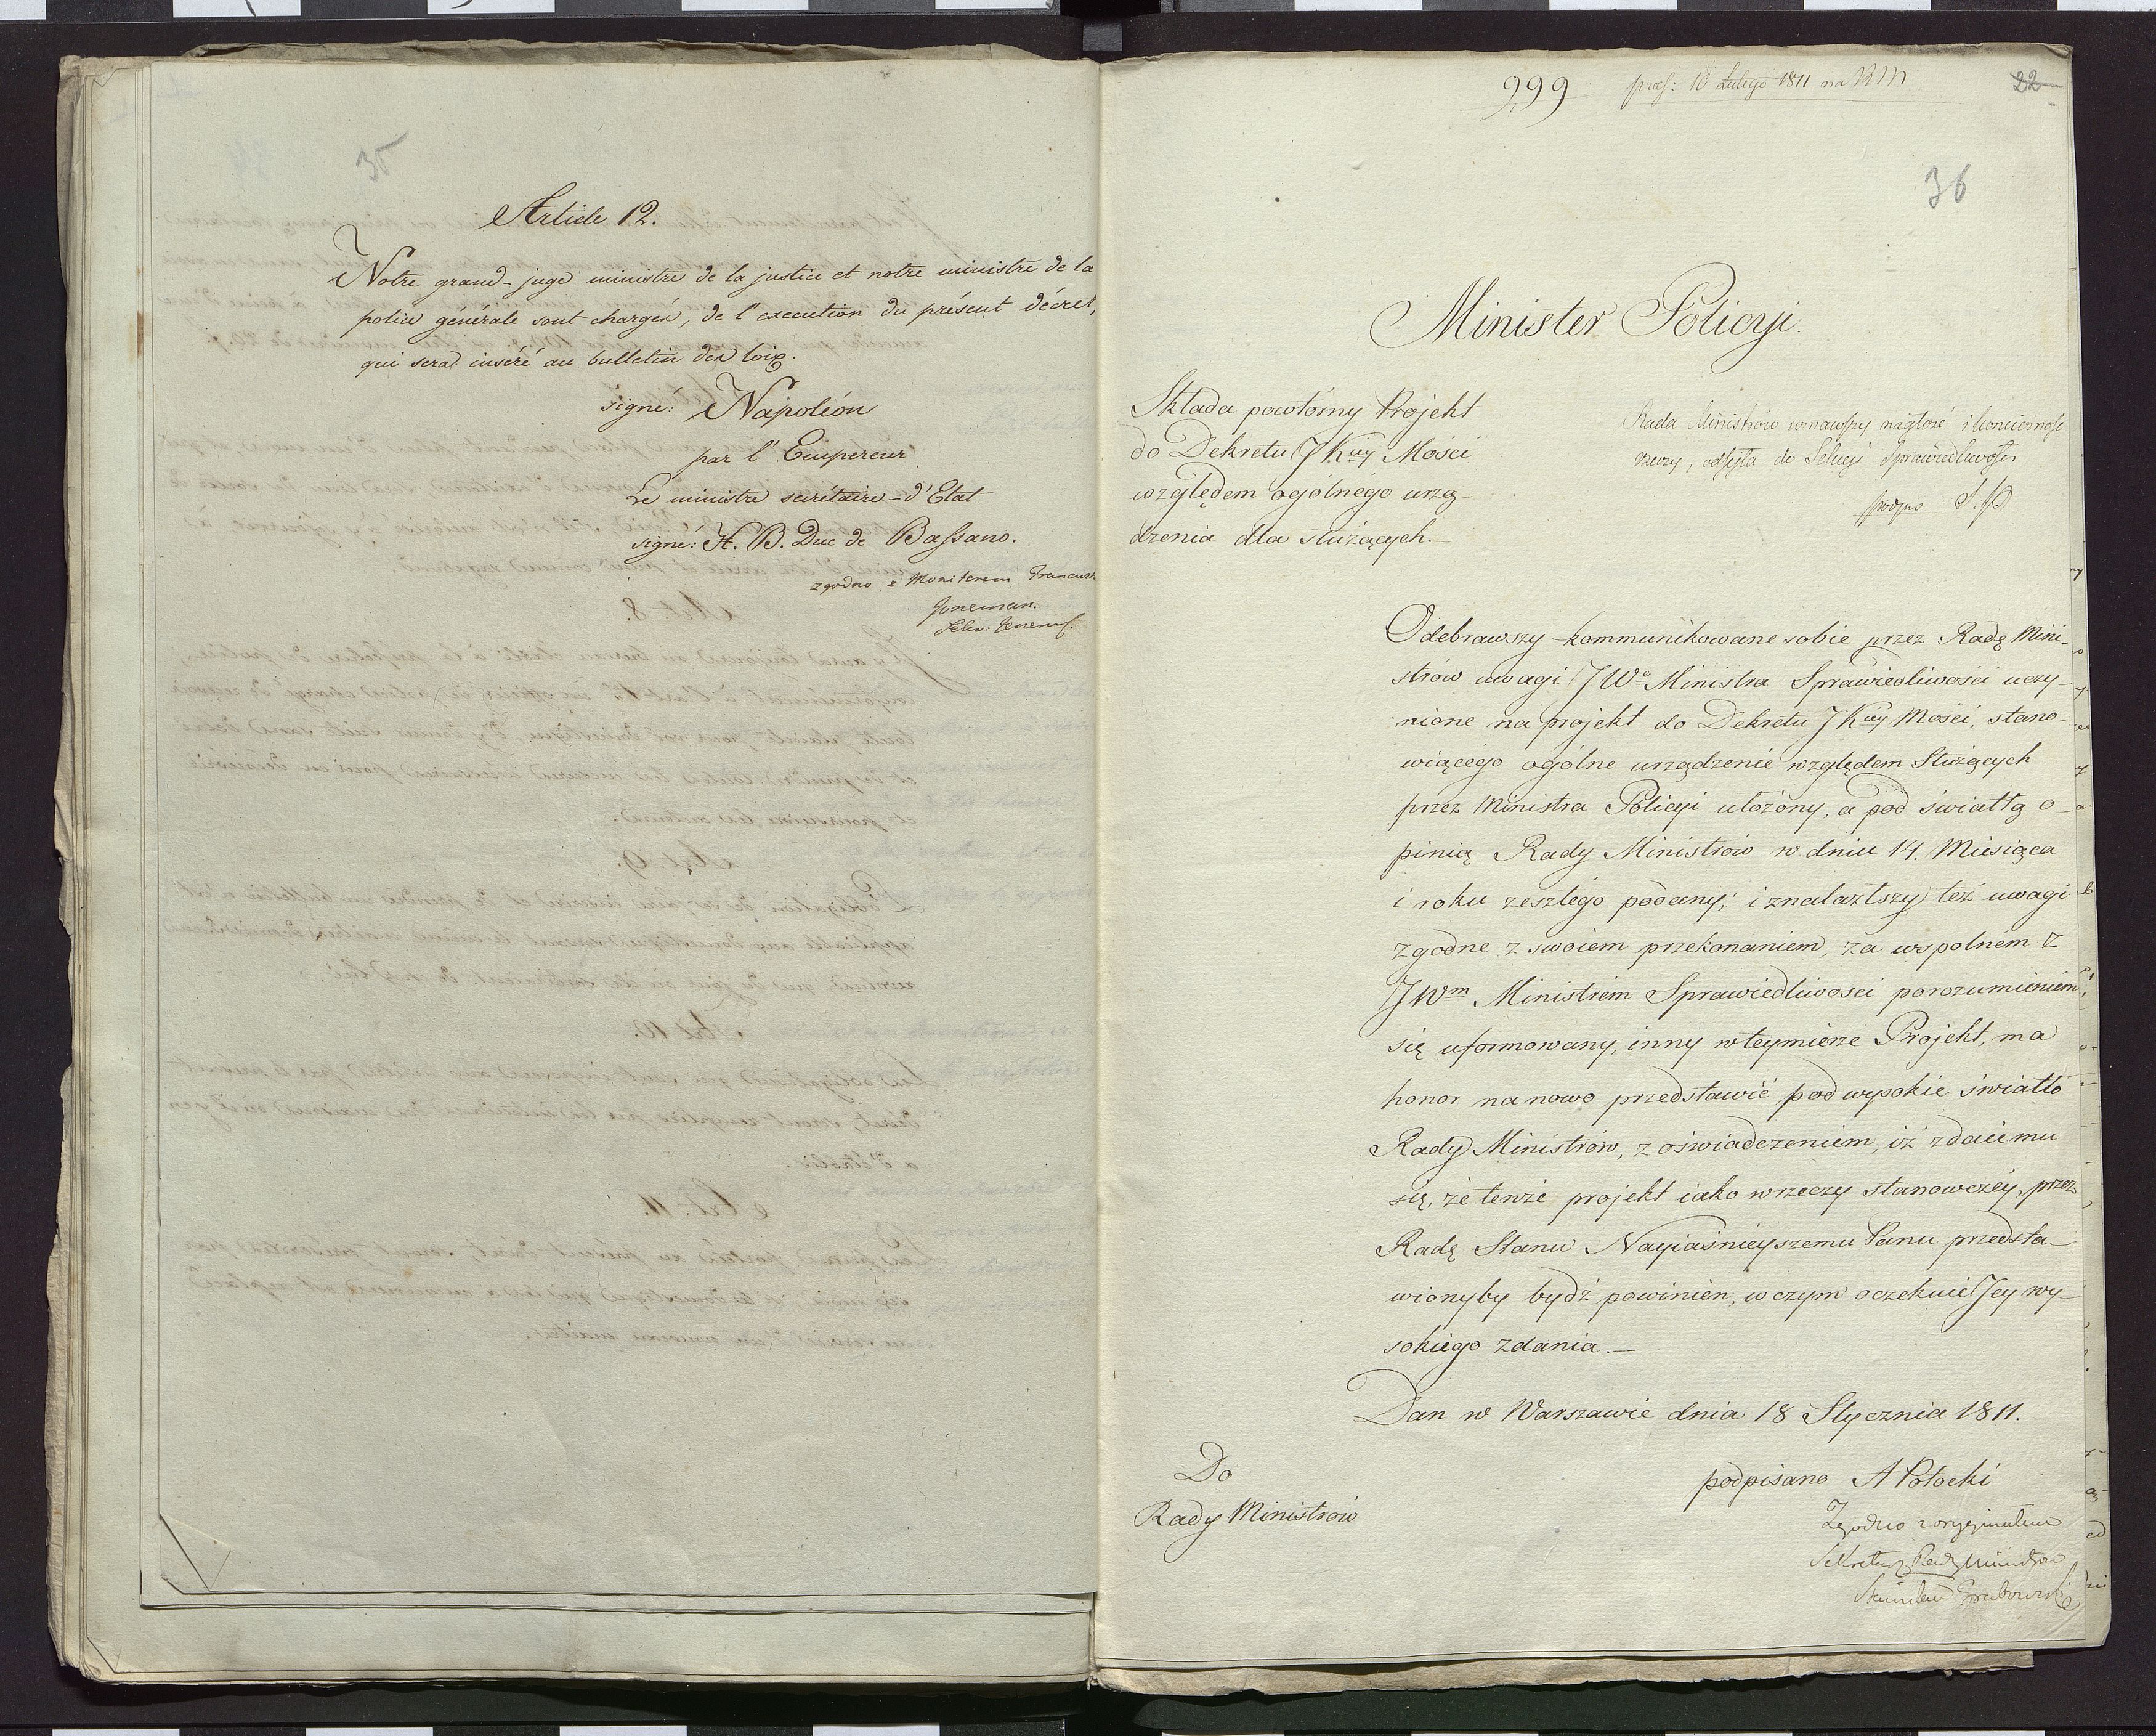 35
Article 12.
Notre grand-juge ministre de la justice et notre ministre de la
police générale sont chargés, de l'execution du présent décret,
qui sera inséré au bulletin des loix.
signé: Napoléon
par l'Empereur
Le ministre secrétaire-d'Etat
signé: H. B. Duc de Bassano.
zgodno z Moniterem Francusk
Sekr. Jener.
999 pras: 10 Lutego 1811 na RM
22
36
Minister Policyi.
Składa powtórny Projekt
do Dekretu JKcy Mości
względem ogólnego urzą-
dzenia dla służących.—
Rada Ministrów uznawszy nagłość i konieczność
rzeczy, odsyła do Sekcyi Sprawiedliwości
Odebrawszy kommunikowane sobie przez Radę Mini-
strów uwagi JWo Ministra Sprawiedliwości uczy-
nione na projekt do Dekretu JKcy Mości, stano-
wiącego ogólne urządzenie względem Służących
przez Ministra Policyi ułożony, a pod światłą o-
pinią Rady Ministrów w dniu 14. Miesiąca
i roku zeszłego podany; i znalazłszy też uwagi
zgodne z swoiem przekonaniem, za wspolnem z
JWm Ministrem Sprawiedliwosci porozumieniem
się uformowany, inny wteymierze Projekt, ma
honor nanowo przedstawić pod wysokie światło
Rady Ministrów, z oświadczeniem, iż zdaiemu
się, że tenże projekt iako wrzeczy stanowczéy, przez
Radę Stanu Nayiaśnieyszemu Panu przedsta-
wionyby bydź powinien, w czym oczekuie Jey wy-
sokiego zdania.—
Dan w Warszawie dnia 18 Stycznia 1811.
Do
Rady Ministrów
podpisano A Potocki
Zgodno z oryginałem
Sekretarz Rady Ministrow
Stanisław Grabowski